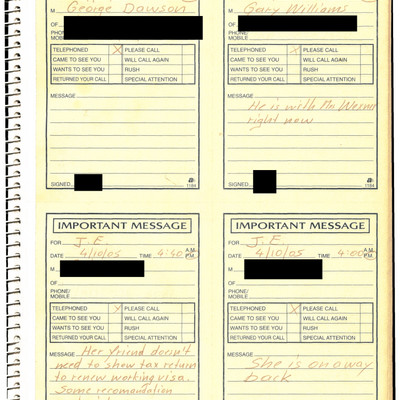 M George Dawson
OF
PHONE/
MOBILE
TELEPHONED X PLEASE CALL
CAME TO SEE YOU WILL CALL AGAIN
WANTS TO SEE YOU RUSH
RETURNED YOUR CALL SPECIAL ATTENTION
MESSAGE
SIGNED 1184
M Gary Williams
OF
PHONE/
MOBILE
TELEPHONED PLEASE CALL
CAME TO SEE YOU WILL CALL AGAIN
WANTS TO SEE YOU RUSH
RETURNED YOUR CALL SPECIAL ATTENTION
MESSAGE
He is with Mr.
right now
SIGNED 1184
IMPORTANT MESSAGE
FOR J.E.
DATE 4/10/05 TIME 4:50 A.M. P.M.
M
OF
PHONE/
MOBILE
TELEPHONED X PLEASE CALL
CAME TO SEE YOU WILL CALL AGAIN
WANTS TO SEE YOU RUSH
RETURNED YOUR CALL SPECIAL ATTENTION
MESSAGE Her friend doesn't
need to show tax return
to renew working visa.
Some recomandation
IMPORTANT MESSAGE
FOR J.E.
DATE 4/10/05 TIME 4:00 A.M. P.M.
M
OF
PHONE/
MOBILE
TELEPHONED X PLEASE CALL
CAME TO SEE YOU WILL CALL AGAIN
WANTS TO SEE YOU RUSH
RETURNED YOUR CALL SPECIAL ATTENTION
MESSAGE
She is on a way
back